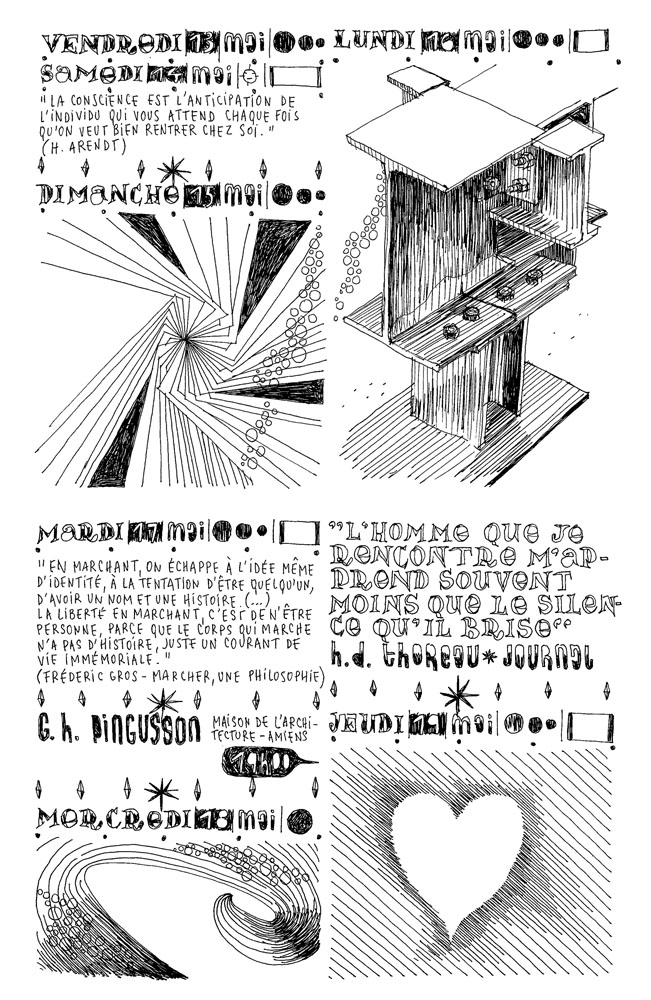 VENDREDI 13 mai
SAMEDI 14 mai
"LA CONSCIENCE EST L'ANTICIPATION DE
L'INDIVIDU QUI VOUS ATTEND CHAQUE FOIS
QU'ON VEUT BIEN RENTRER CHEZ SOI."
(H. ARENDT)
DIMANCHE 15 mai
LUNDI 16 mai
MARDI 17 mai
"EN MARCHANT, ON ÉCHAPPE À L'IDÉE MÊME
D'IDENTITÉ, À LA TENTATION D'ÊTRE QUELQU'UN,
D'AVOIR UN NOM ET UNE HISTOIRE (...)
LA LIBERTÉ EN MARCHANT, C'EST DE N'ÊTRE
PERSONNE, PARCE QUE LE CORPS QUI MARCHE
N'A PAS D'HISTOIRE, JUSTE UN COURANT DE
VIE IMMÉMORIALE."
(FRÉDÉRIC GROS - MARCHER, UNE PHILOSOPHIE)
G. h. PINGUSSON MAISON DE L'ARCHI-
TECTURE - AMIENS
MERCREDI 18 mai
"L'HOMME QUE JE
RENCONTRE M'AP-
PREND SOUVENT
MOINS QUE LE SILEN-
CE QU'IL BRISE"
h.d. thoreau * JOURNAL
JEUDI 19 mai